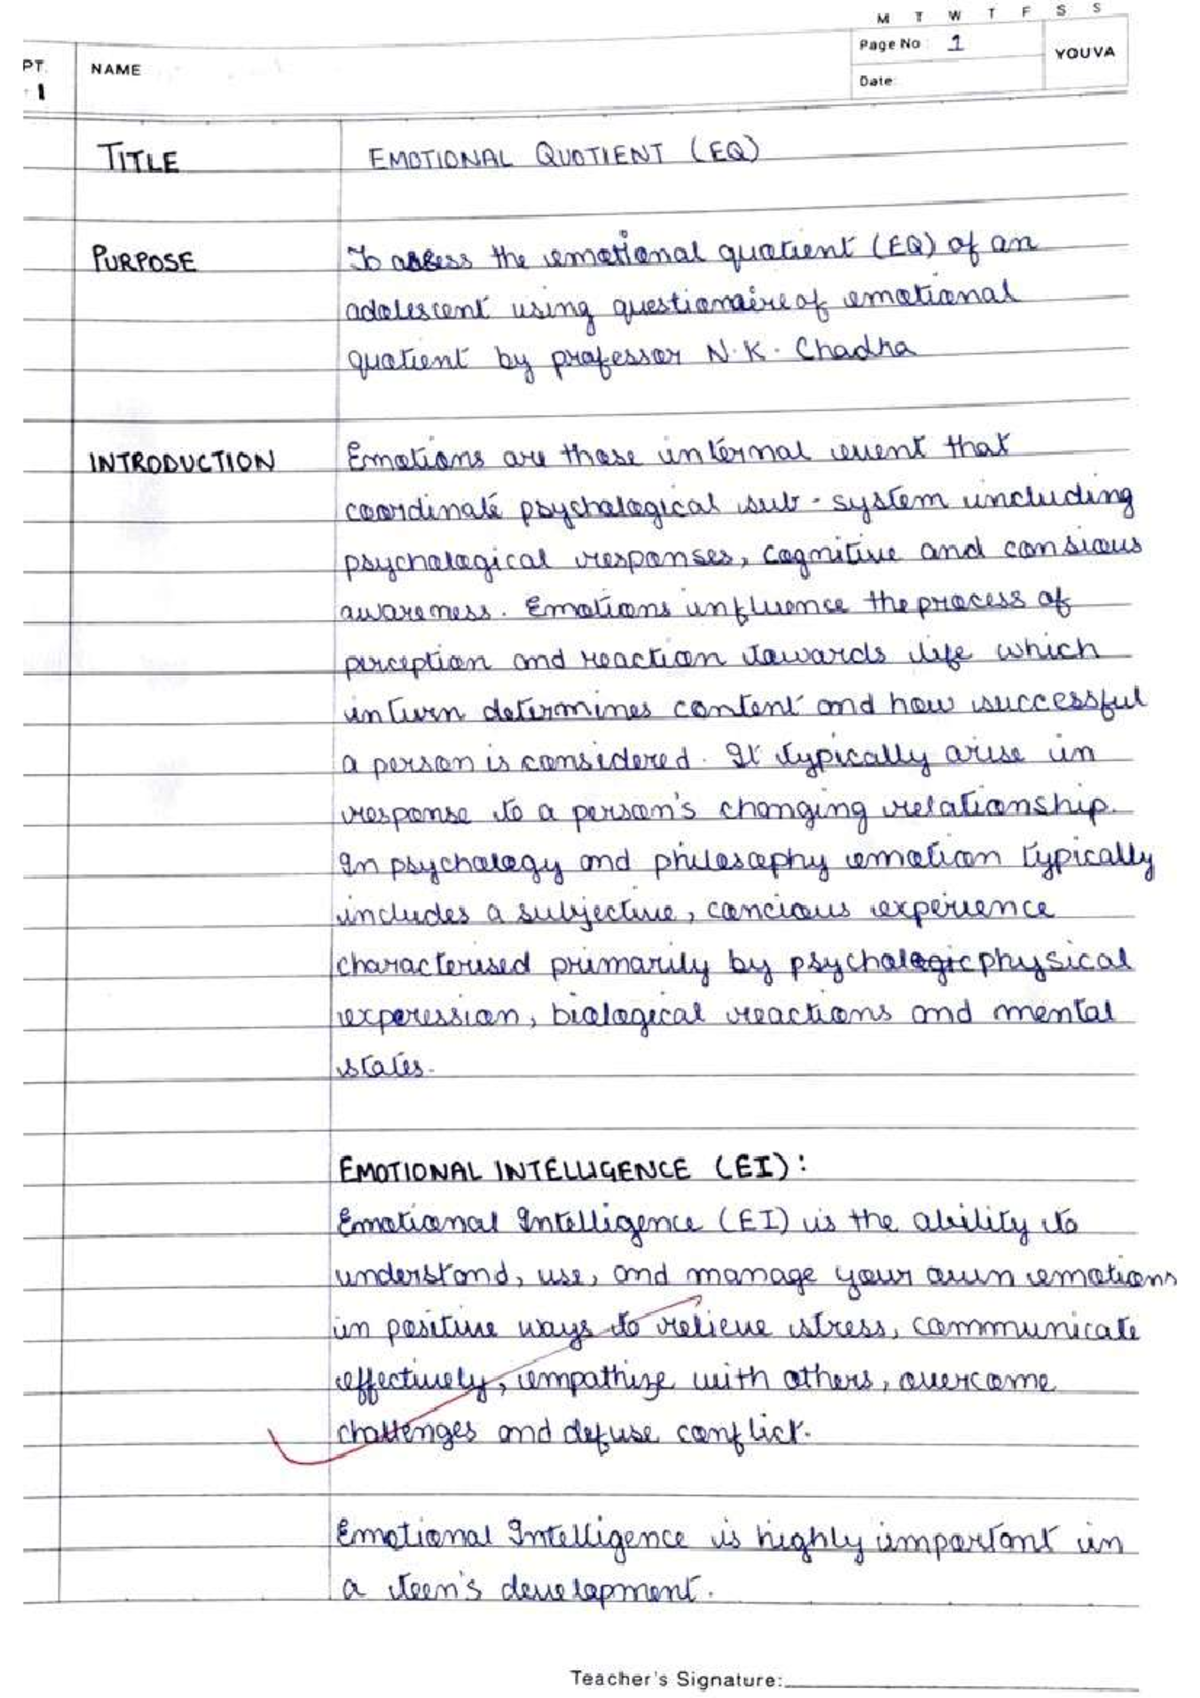 M T W T F S S
Page No: 1
YOUVA
PT.
1
NAME
Date:
TITLE
EMOTIONAL QUOTIENT (EQ)
PURPOSE
To assess the emotional quotient (EQ) of an
adolescent using questionaire of emotional
quotient by professor N.K. Chadha
INTRODUCTION
Emotions are those internal event that
coordinate psychological sub-system including
psychological responses, cognitive and consious
awareness. Emotions influence the process of
perception and reaction towards life which
inturn determines content and how successful
a person is considered. It typically arise in
response to a person's changing relationship.
In psychology and philosophy emotion typically
includes a subjective, concious experience
characterised primarily by psychologicphysical
experession, biological reactions and mental
states.
EMOTIONAL INTELLIGENCE (EI):
Emotional Intelligence (EI) is the ability to
understand, use, and manage your own emotions
in positive ways to relieve stress, communicate
effectively, empathize with others, overcome
challenges and defuse conflict.
Emotional Intelligence is highly important in
a teen's development.
Teacher's Signature: